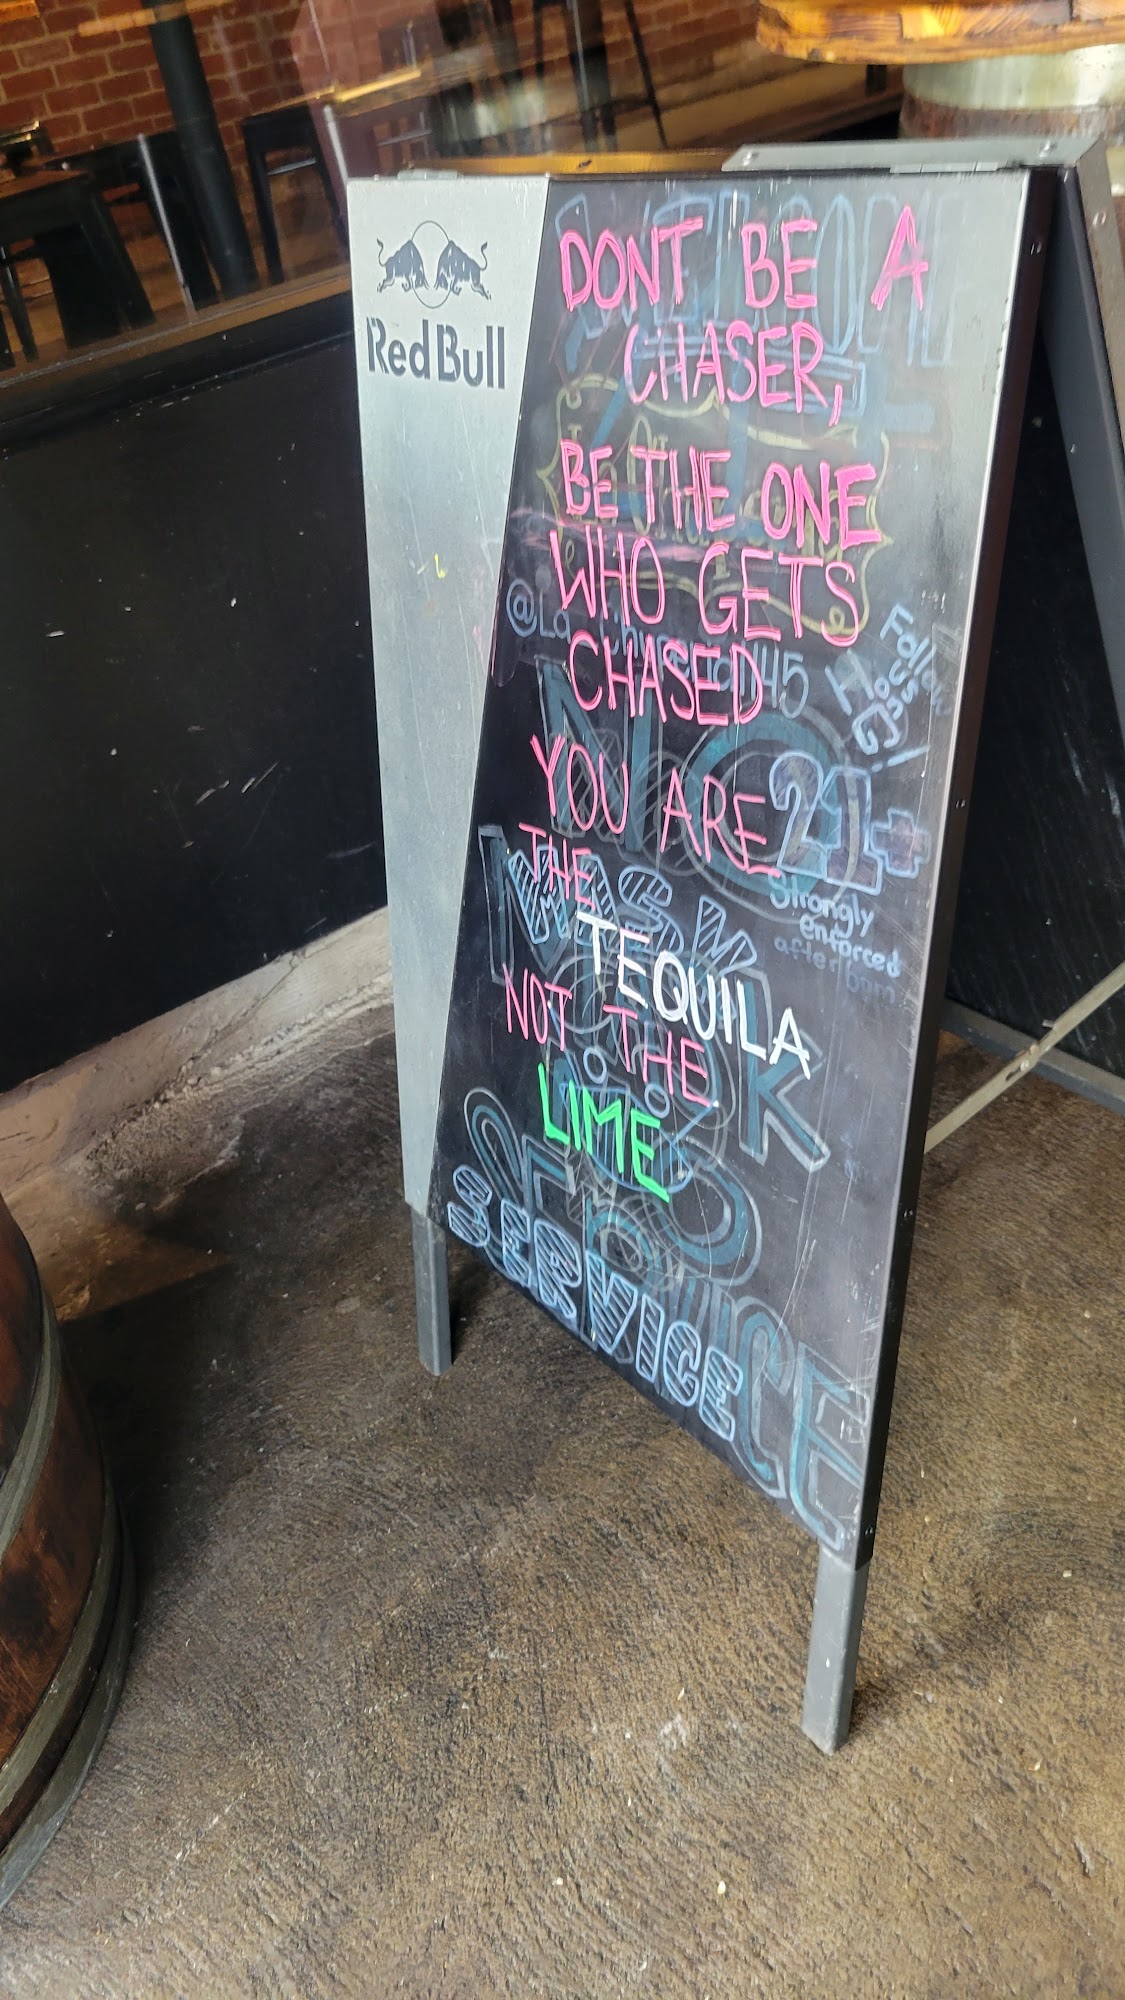 Red Bull
DONT BE A
CHASER,
BE THE ONE
WHO GETS
CHASED
YOU ARE
THE
TEQUILA
NOT THE
LIME
WELCOME
Follow
us on
IG!
21+
Strongly
enforced
after 8pm
NO
MASK
NO
SERVICE